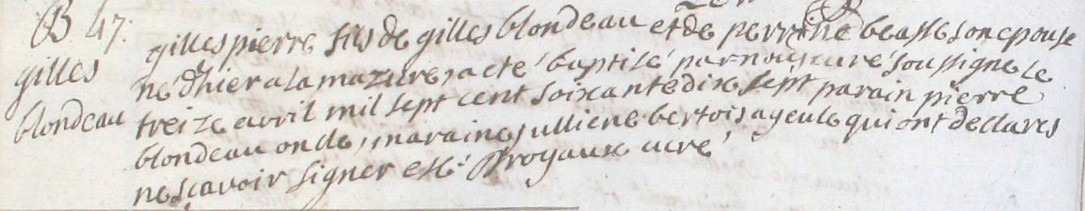 B 47.
gilles
blondeau
gilles pierre fils de gilles blondeau et de perrine beasse son epouse
ne d'hier a la mazure, a eté baptisé par nous curé soussigne le
treize avril mil sept cent soixante dix sept parain pierre
blondeau oncle, maraine julliene bertois ayeule qui ont declarés
ne sçavoir signer
royaux curé